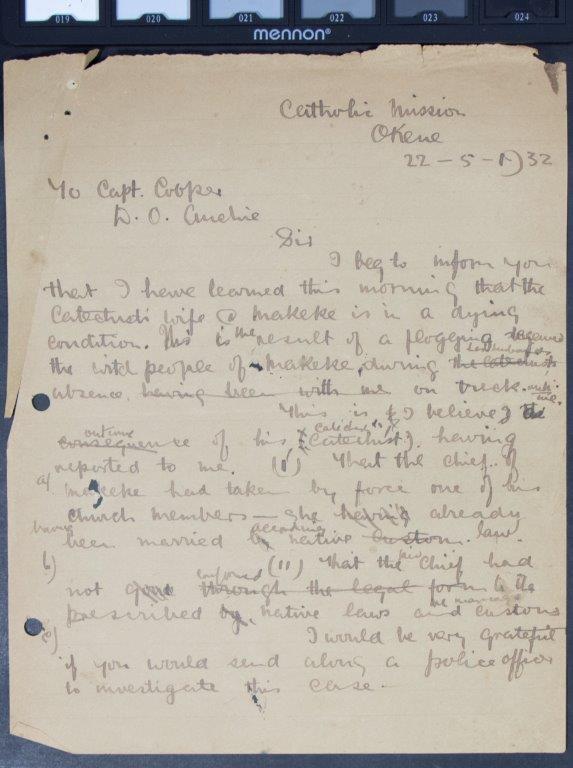 019 020 021 022 023 024
mennon®
Catholic Mission
Okene
22 - 5 - 32
To Capt. Cooper
D. O. Auchie
Sir
I beg to inform you
that I have learned this morning that the
Catechist's wife @ Makeke is in a dying
condition. This is the result of a flogging
the people of Makeke, during the catechist's
absence, having been with me on treck. with me.
This is I believe, the
outcome
consequence of his (Catechist), having
reported to me. (1) That the chief of
a) Makeke had taken by force one of his
church members — she having already
having according
been married by native custom. law.
b) (11) That the said chief had
conformed
not gone through the legal form to the
the marriage
prescribed by native laws and customs
c) I would be very grateful
if you would send along a police officer
to investigate this case.